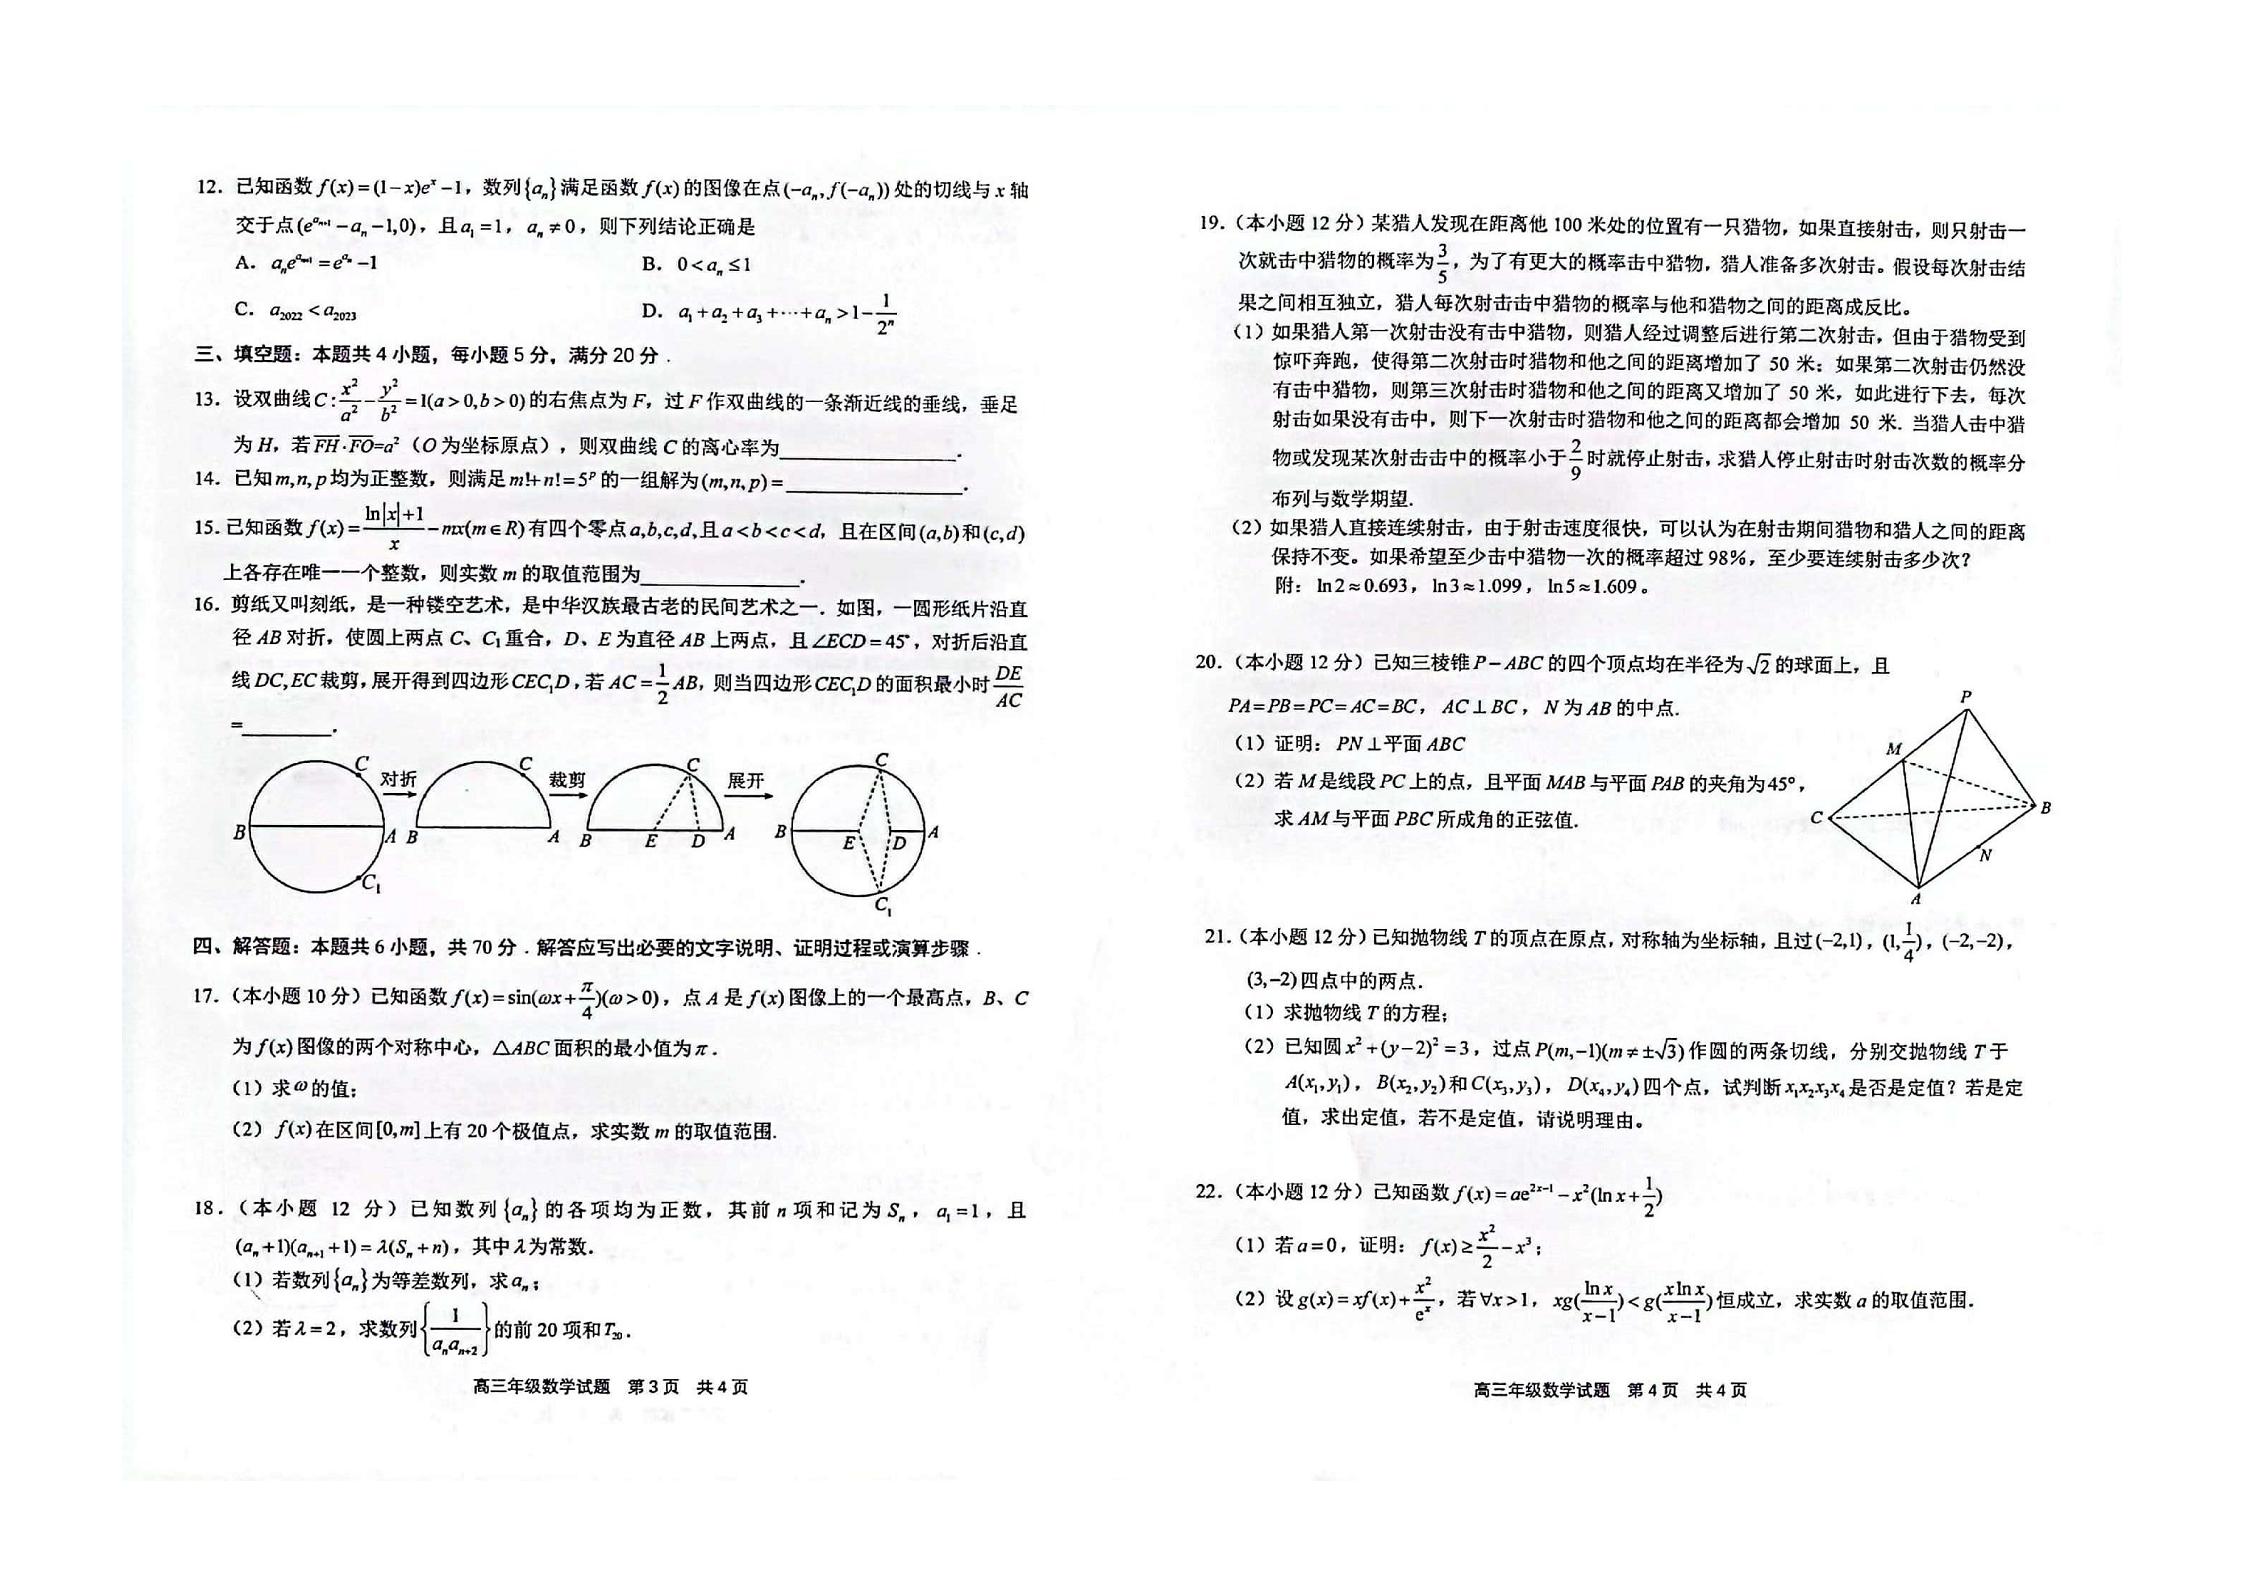 12. 已知函数 f(x)=(1-x)eˣ-1，数列{aₙ}满足函数 f(x) 的图像在点(-aₙ, f(-aₙ)) 处的切线与 x 轴
交于点(e^{aₙ₊₁}-aₙ-1,0)，且a₁=1，aₙ≠0，则下列结论正确是
A. aₙe^{aₙ₊₁}=e^{aₙ}-1    B. 0<aₙ≤1
C. a₂₀₂₂<a₂₀₂₃    D. a₁+a₂+a₃+⋯+aₙ>1-1/2ⁿ
三、填空题：本题共 4 小题，每小题 5 分，满分 20 分．
13. 设双曲线C: x²/a²-y²/b²=1(a>0,b>0)的右焦点为 F，过 F 作双曲线的一条渐近线的垂线，垂足
为 H，若 FH·FO=a²（O 为坐标原点），则双曲线 C 的离心率为________.
14. 已知m,n,p均为正整数，则满足 m!+n!=5ᵖ 的一组解为(m,n,p)=________.
15. 已知函数 f(x)=(ln|x|+1)/x-mx(m∈R)有四个零点a,b,c,d,且a<b<c<d，且在区间(a,b)和(c,d)
上各存在唯一一个整数，则实数 m 的取值范围为________.
16. 剪纸又叫刻纸，是一种镂空艺术，是中华汉族最古老的民间艺术之一．如图，一圆形纸片沿直
径 AB 对折，使圆上两点 C、C₁重合，D、E 为直径 AB 上两点，且∠ECD=45°，对折后沿直
线 DC,EC 裁剪，展开得到四边形CEC₁D，若 AC=1/2AB，则当四边形CEC₁D的面积最小时 DE/AC
=________.
C 对折 C 裁剪 C 展开 C
B A B A B E D A B E D A
C₁ C₁
四、解答题：本题共 6 小题，共 70 分．解答应写出必要的文字说明、证明过程或演算步骤．
17.（本小题 10 分）已知函数 f(x)=sin(ωx+π/4)(ω>0)，点 A 是 f(x) 图像上的一个最高点，B、C
为 f(x) 图像的两个对称中心，△ABC 面积的最小值为π．
（1）求ω的值；
（2）f(x)在区间[0,m]上有 20 个极值点，求实数 m 的取值范围.
18.（本小题 12 分）已知数列{aₙ}的各项均为正数，其前 n 项和记为 Sₙ，a₁=1，且
(aₙ+1)(aₙ₊₁+1)=λ(Sₙ+n)，其中λ为常数．
（1）若数列{aₙ}为等差数列，求aₙ；
（2）若λ=2，求数列{1/(aₙaₙ₊₂)}的前 20 项和T₂₀．
高三年级数学试题 第 3 页 共 4 页
19.（本小题 12 分）某猎人发现在距离他 100 米处的位置有一只猎物，如果直接射击，则只射击一
次就击中猎物的概率为3/5，为了有更大的概率击中猎物，猎人准备多次射击。假设每次射击结
果之间相互独立，猎人每次射击击中猎物的概率与他和猎物之间的距离成反比。
（1）如果猎人第一次射击没有击中猎物，则猎人经过调整后进行第二次射击，但由于猎物受到
惊吓奔跑，使得第二次射击时猎物和他之间的距离增加了 50 米；如果第二次射击仍然没
有击中猎物，则第三次射击时猎物和他之间的距离又增加了 50 米，如此进行下去，每次
射击如果没有击中，则下一次射击时猎物和他之间的距离都会增加 50 米. 当猎人击中猎
物或发现某次射击击中的概率小于2/9时就停止射击，求猎人停止射击时射击次数的概率分
布列与数学期望.
（2）如果猎人直接连续射击，由于射击速度很快，可以认为在射击期间猎物和猎人之间的距离
保持不变。如果希望至少击中猎物一次的概率超过 98%，至少要连续射击多少次？
附：ln2≈0.693，ln3≈1.099，ln5≈1.609。
20.（本小题 12 分）已知三棱锥P-ABC的四个顶点均在半径为√2的球面上，且
PA=PB=PC=AC=BC，AC⊥BC，N 为 AB 的中点.
（1）证明：PN⊥平面 ABC
（2）若 M 是线段 PC 上的点，且平面 MAB 与平面 PAB 的夹角为45°，
求 AM 与平面 PBC 所成角的正弦值.
P
M
C B
N
A
21.（本小题 12 分）已知抛物线 T 的顶点在原点，对称轴为坐标轴，且过(-2,1)，(1,1/4)，(-2,-2)，
(3,-2)四点中的两点.
（1）求抛物线 T 的方程；
（2）已知圆x²+(y-2)²=3，过点P(m,-1)(m≠±√3)作圆的两条切线，分别交抛物线 T 于
A(x₁,y₁)，B(x₂,y₂)和C(x₃,y₃)，D(x₄,y₄)四个点，试判断x₁x₂x₃x₄是否是定值？若是定
值，求出定值，若不是定值，请说明理由。
22.（本小题 12 分）已知函数 f(x)=ae^{2x-1}-x²(lnx+1/2)
（1）若a=0，证明：f(x)≥x²/2-x³；
（2）设g(x)=xf(x)+x²/eˣ，若∀x>1，xg(lnx/(x-1))<g(xlnx/(x-1))恒成立，求实数 a 的取值范围．
高三年级数学试题 第 4 页 共 4 页